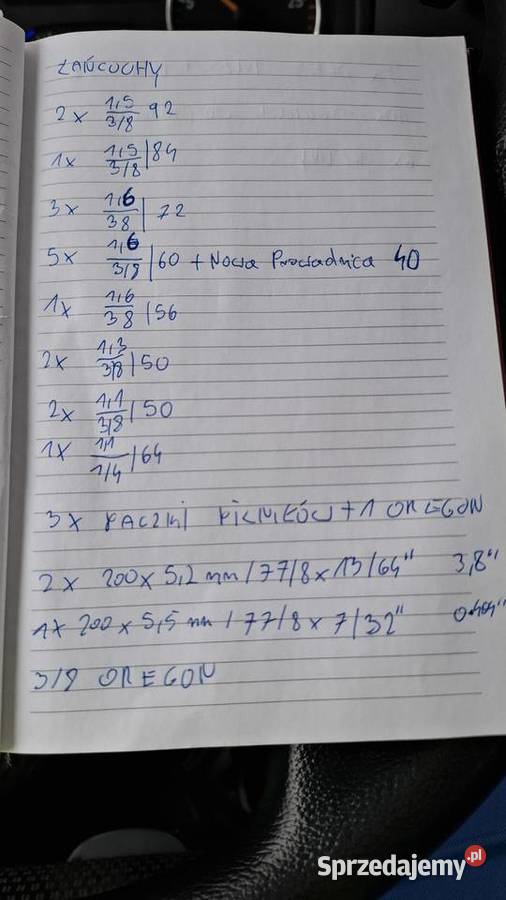 ŁAŃCUCHY
2x 1,5/3/8 92
1x 1,5/3/8 | 84
3x 1,6/38 | 72
5x 1,6/3/8 | 60 + Nowa Prowadnica 40
1x 1,6/38 | 56
2x 1,3/3/8 | 50
2x 1,1/3/8 | 50
1x 1,1/1/4 | 64
3x PACZKI PILNIKÓW + 1 OREGON
2x 200 x 5,2 mm / 77/8 x 13/64" 3,8"
1x 200 x 5,5 mm / 77/8 x 7/32" 0.404"
3/8 OREGON
Sprzedajemy.pl